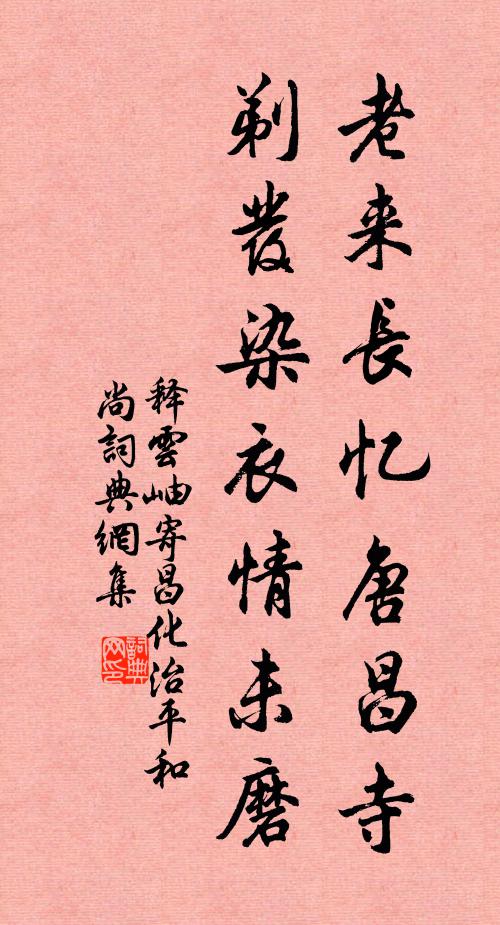 老来長忆唐昌寺
剃發染衣情未磨
释雲岫寄昌化治平和
尚詞典網集
詞典
网印